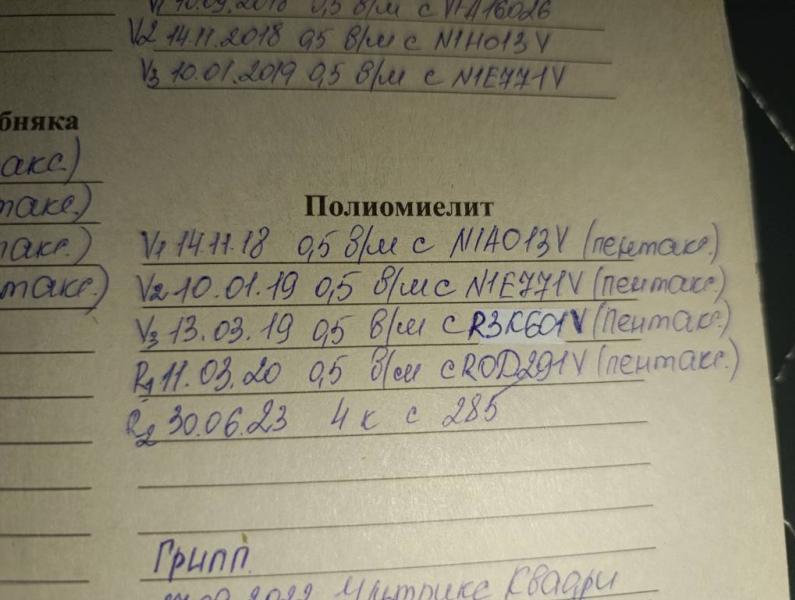 V1 10.09.2018 0,5 в/м с
V2 14.11.2018 0,5 в/м с N1H013V
V3 10.01.2019 0,5 в/м с N1E771V
бняка
акс.)
Полиомиелит
такс.)
V1 14.11.18 0,5 в/м с N1A013V (пентакс.)
такс.)
V2 10.01.19 0,5 в/м с N1E771V (пентакс.)
такс.)
V3 13.03.19 0,5 в/м с R3K601V (пентакс.)
R1 11.03.20 0,5 в/м с R0D291V (пентакс.)
R2 30.06.23 4 к с 285
Грипп
2022 Ультрикс Квадри